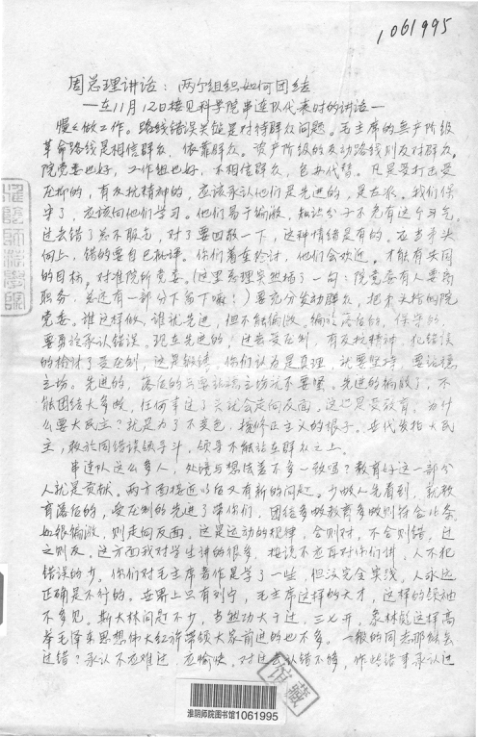 1061995
周总理讲话：两个组织如何团结
—在11月12日接见科学院串连队代表时的讲话—
慢慢做工作。路线错误关键是对待群众问题。毛主席的无产阶级
革命路线是相信群众，依靠群众。资产阶级的反动路线则反对群众。
院党委也好，工作组也好，不相信群众，包办代替。凡是受打也受
压抑的，有反抗精神的，应该承认他们是先进的，是左派。我们保
守了，应该向他们学习。他们易于偏激，知识分子不免有这个习气，
过去错了总不服气，对了要回敬一下，这种情绪是有的。
错的要自己批评。你们着重检讨，他们会欢迎。才能有共同
的目标，对准院所党委。（这里总理突然插了一句：院党委有人要离
职务，总还有一部分下留下嘛！）要充分发动群众，把
党委。谁这样做，谁就先进，但不能偏激。
要勇敢承认错误。现在先进的，过去受压制，有反抗精神，把错误
你们认为是真理，就要坚持，要站稳
立场。先进的，先进的偏激了，不
能团结大多数，任何事过了头就会走向反面，这也是受教育。为什
么要大民主？就是为了不变色，挖修正主义的根子。
主，敢于同错误领导斗，领导不能站在群众之上。
串连队这么多人，处境与想法差不多一致吗？教育好这一部分
人就是贡献。两方面接近以后又有新的问题。少数人先看到，就教
育落后的，受压制的先进了带你们，团结多数教育多数则符合十六条
如很偏激，则走向反面，这是运动的规律，合则对，不合则错，过
之则反。这方面我对学生讲的很多，按说不应再对你们讲，人不犯
错误的少。你们对毛主席著作是学了一些，但没完全实践，人永远
正确是不行的。世界上只有列宁，毛主席这样的天才，这样的领袖
不多见。斯大林问题不少，当然功大于过，三七开，象林彪这样高
举毛泽东思想伟大红旗带领大家前进的也不多。一般的同志那能无
过错？承认不应难过，应愉快，对过去认错不够，
馆藏
淮阴师院图书馆1061995